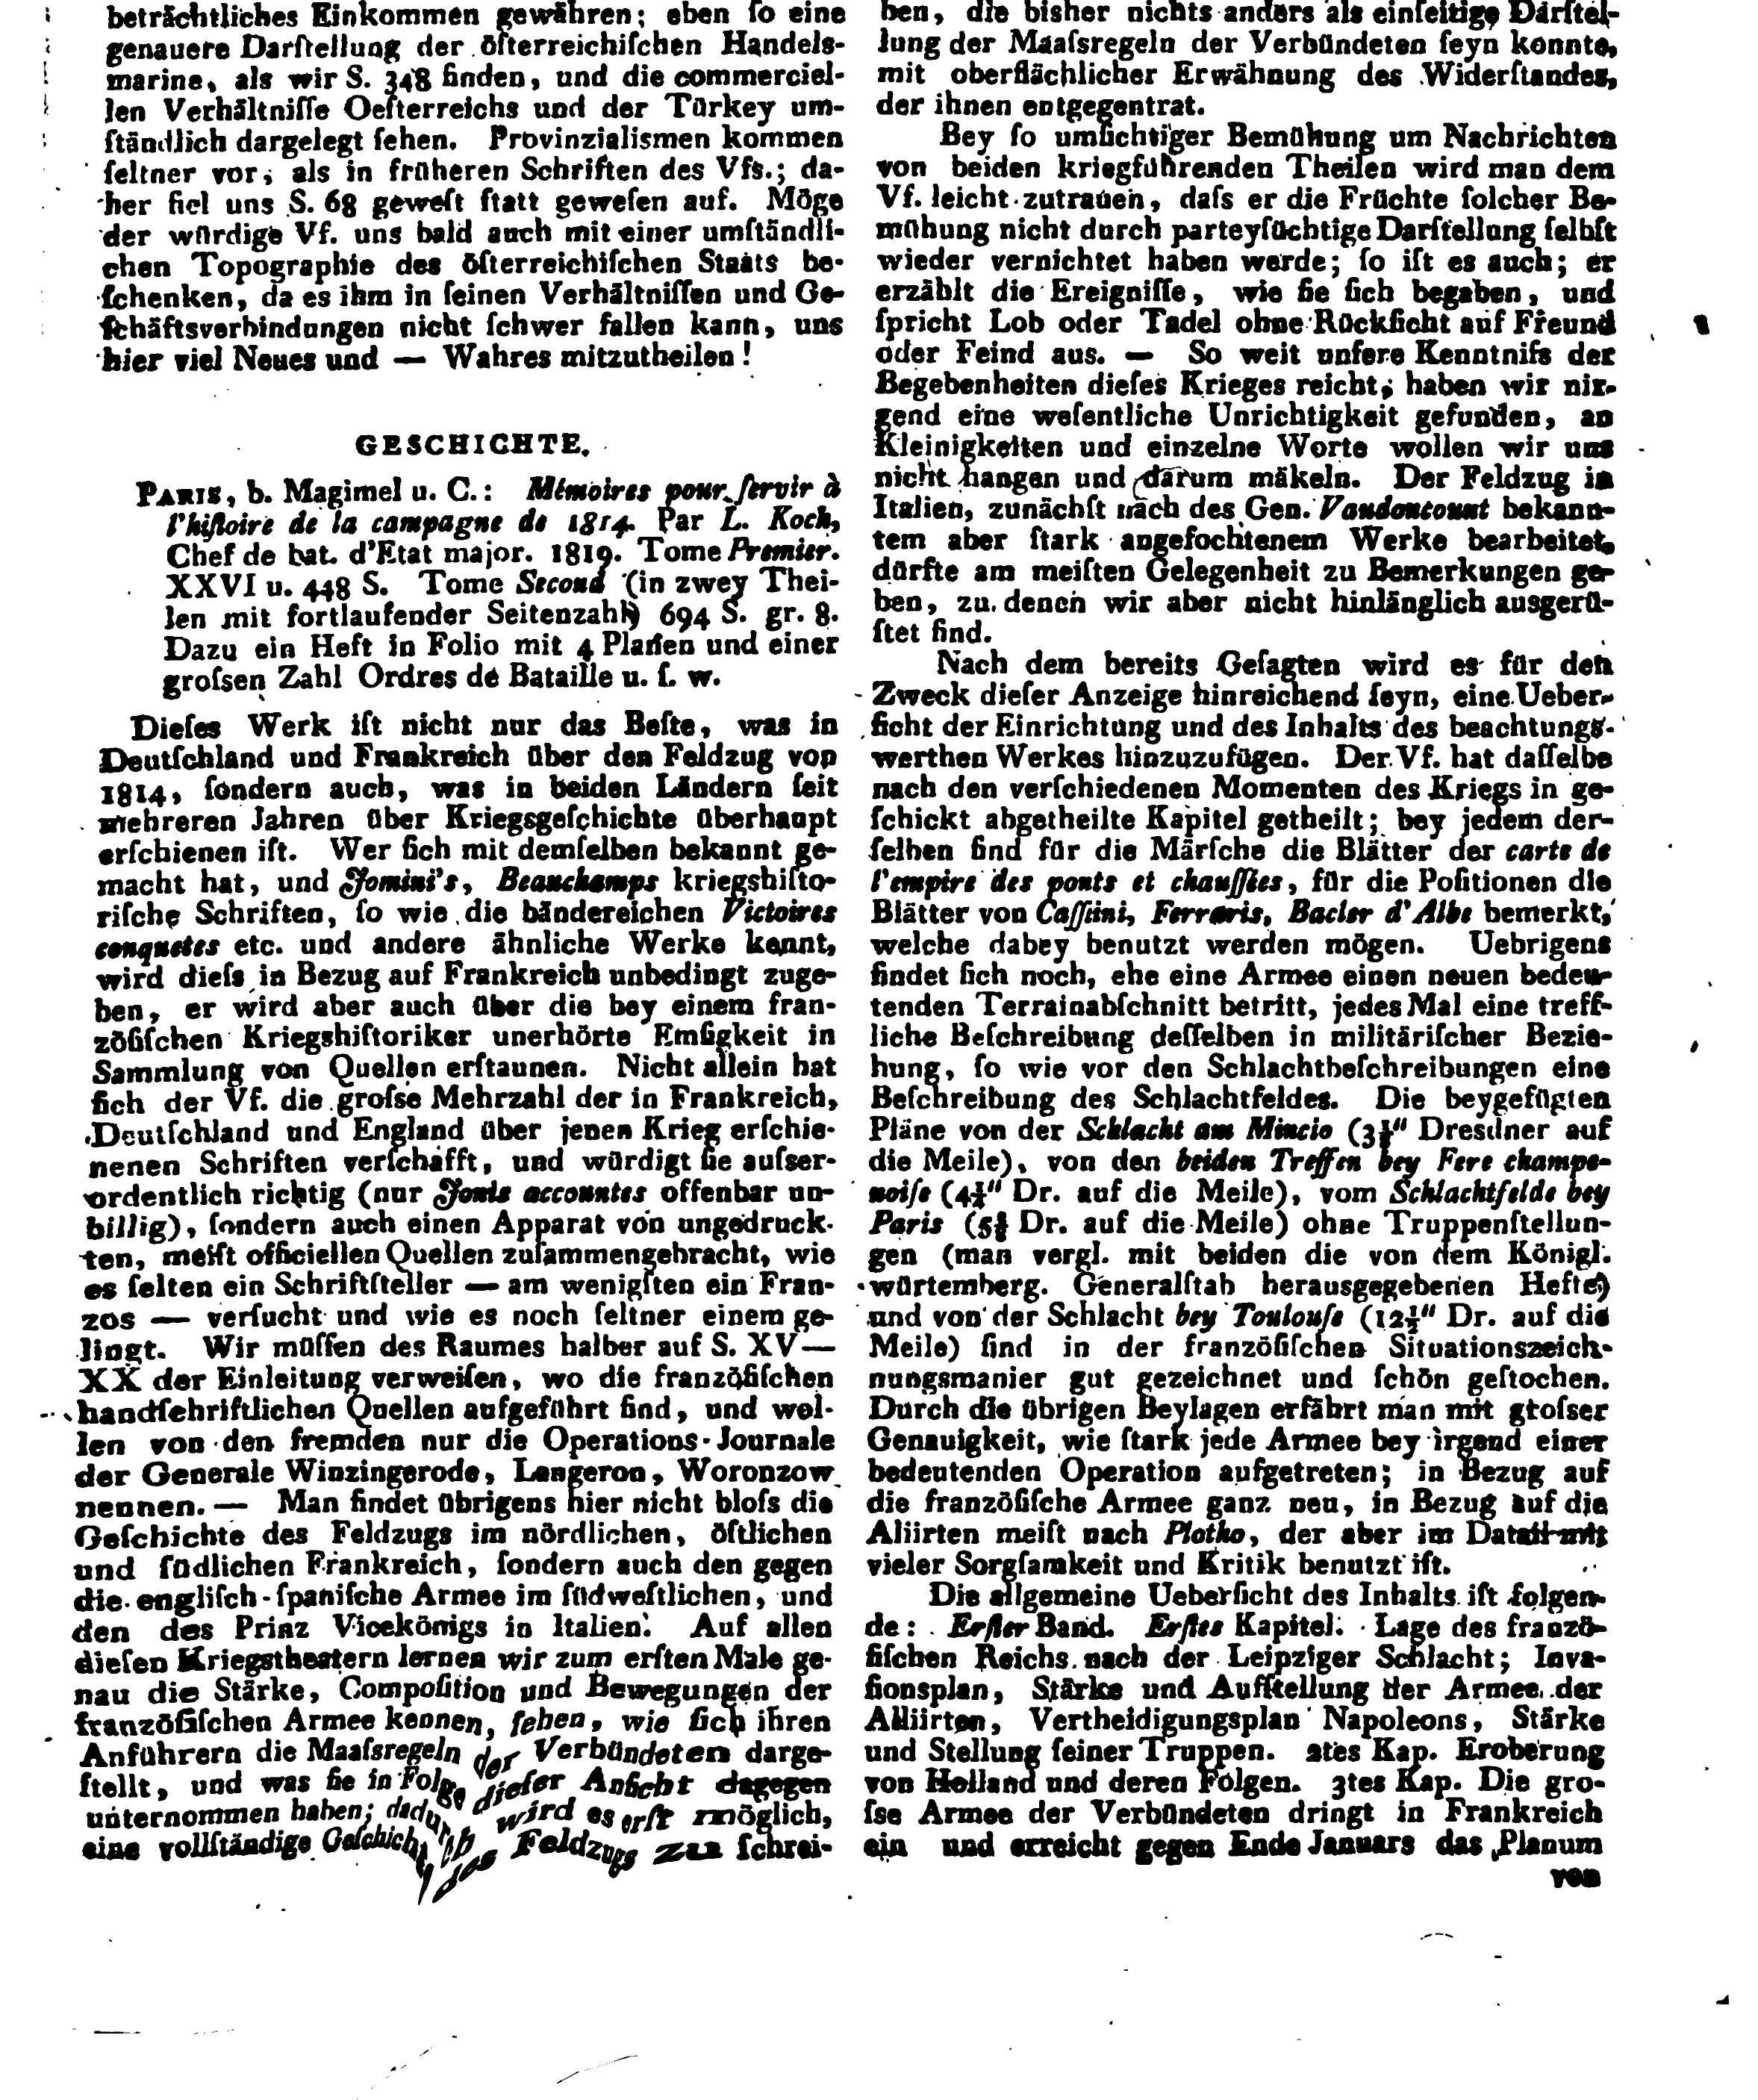 beträchtliches Einkommen gewähren; eben ſo eine
genauere Darſtellung der öſterreichiſchen Handels-
marine, als wir S. 348 finden, und die commerciel-
len Verhältniſſe Oeſterreichs und der Türkey um-
ſtändlich dargelegt ſehen. Provinzialismen kommen
ſeltner vor, als in früheren Schriften des Vfs.; da-
her fiel uns S. 68 geweſt ſtatt geweſen auf. Möge
der würdige Vf. uns bald auch mit einer umſtändli-
chen Topographie des öſterreichiſchen Staats be-
ſchenken, da es ihm in ſeinen Verhältniſſen und Ge-
ſchäftsverbindungen nicht ſchwer fallen kann, uns
hier viel Neues und — Wahres mitzutheilen!
GESCHICHTE.
PARIS, b. Magimel u. C.: Mémoires pour ſervir à
l'hiſtoire de la campagne de 1814. Par L. Koch,
Chef de bat. d'Etat major. 1819. Tome Premier.
XXVI u. 448 S. Tome Second (in zwey Thei-
len mit fortlaufender Seitenzahl) 694 S. gr. 8.
Dazu ein Heft in Folio mit 4 Planen und einer
groſsen Zahl Ordres de Bataille u. ſ. w.
Dieſes Werk iſt nicht nur das Beſte, was in
Deutſchland und Frankreich über den Feldzug von
1814, ſondern auch, was in beiden Ländern ſeit
mehreren Jahren über Kriegsgeſchichte überhaupt
erſchienen iſt. Wer ſich mit demſelben bekannt ge-
macht hat, und Jomini's, Beauchamps kriegshiſto-
riſche Schriften, ſo wie die bändereichen Victoires
conquetes etc. und andere ähnliche Werke kennt,
wird dieſs in Bezug auf Frankreich unbedingt zuge-
ben, er wird aber auch über die bey einem fran-
zöſiſchen Kriegshiſtoriker unerhörte Emſigkeit in
Sammlung von Quellen erſtaunen. Nicht allein hat
ſich der Vf. die groſse Mehrzahl der in Frankreich,
Deutſchland und England über jenen Krieg erſchie-
nenen Schriften verſchafft, und würdigt ſie auſser-
ordentlich richtig (nur Jonis accountes offenbar un-
billig), ſondern auch einen Apparat von ungedruck-
ten, meiſt officiellen Quellen zuſammengebracht, wie
es ſelten ein Schriftſteller — am wenigſten ein Fran-
zos — verſucht und wie es noch ſeltner einem ge-
lingt. Wir müſſen des Raumes halber auf S. XV—
XX der Einleitung verweiſen, wo die franzöſiſchen
handſchriftlichen Quellen aufgeführt ſind, und wol-
len von den fremden nur die Operations-Journale
der Generale Winzingerode, Langeron, Woronzow
nennen. — Man findet übrigens hier nicht bloſs die
Geſchichte des Feldzugs im nördlichen, öſtlichen
und ſüdlichen Frankreich, ſondern auch den gegen
die engliſch-ſpaniſche Armee im ſüdweſtlichen, und
den des Prinz Vicekönigs in Italien. Auf allen
dieſen Kriegstheatern lernen wir zum erſten Male ge-
nau die Stärke, Compoſition und Bewegungen der
franzöſiſchen Armee kennen, ſehen, wie ſich ihren
Anführern die Maaſsregeln der Verbündeten darge-
ſtellt, und was ſie in Folge dieſer Anſicht dagegen
unternommen haben; dadurch wird es erſt möglich,
eine vollſtändige Geſchichte des Feldzugs zu ſchrei-
ben, die bisher nichts anders als einſeitige Darſtel-
lung der Maaſsregeln der Verbündeten ſeyn konnte,
mit oberflächlicher Erwähnung des Widerſtandes,
der ihnen entgegentrat.
Bey ſo umſichtiger Bemühung um Nachrichten
von beiden kriegführenden Theilen wird man dem
Vf. leicht zutrauen, daſs er die Früchte ſolcher Be-
mühung nicht durch parteyſüchtige Darſtellung ſelbſt
wieder vernichtet haben werde; ſo iſt es auch; er
erzählt die Ereigniſſe, wie ſie ſich begaben, und
ſpricht Lob oder Tadel ohne Rückſicht auf Freund
oder Feind aus. — So weit unſere Kenntniſs der
Begebenheiten dieſes Krieges reicht, haben wir nir-
gend eine weſentliche Unrichtigkeit gefunden, an
Kleinigkeiten und einzelne Worte wollen wir uns
nicht hangen und darum mäkeln. Der Feldzug in
Italien, zunächſt nach des Gen. Vaudoncount bekann-
tem aber ſtark angefochtenem Werke bearbeitet,
dürfte am meiſten Gelegenheit zu Bemerkungen ge-
ben, zu denen wir aber nicht hinlänglich ausgerü-
ſtet ſind.
Nach dem bereits Geſagten wird es für den
Zweck dieſer Anzeige hinreichend ſeyn, eine Ueber-
ſicht der Einrichtung und des Inhalts des beachtungs-
werthen Werkes hinzuzufügen. Der Vf. hat daſſelbe
nach den verſchiedenen Momenten des Kriegs in ge-
ſchickt abgetheilte Kapitel getheilt; bey jedem der-
ſelben ſind für die Märſche die Blätter der carte de
l'empire des ponts et chauſſées, für die Poſitionen die
Blätter von Caſſini, Ferraris, Bacler d'Albe bemerkt,
welche dabey benutzt werden mögen. Uebrigens
findet ſich noch, ehe eine Armee einen neuen bedeu-
tenden Terrainabſchnitt betritt, jedes Mal eine treff-
liche Beſchreibung deſſelben in militäriſcher Bezie-
hung, ſo wie vor den Schlachtbeſchreibungen eine
Beſchreibung des Schlachtfeldes. Die beygefügten
Pläne von der Schlacht am Mincio (3½" Dresdner auf
die Meile), von den beiden Treffen bey Fere champe-
noiſe (4¼" Dr. auf die Meile), vom Schlachtfelde bey
Paris (5⅜ Dr. auf die Meile) ohne Truppenſtellun-
gen (man vergl. mit beiden die von dem Königl.
würtemberg. Generalſtab herausgegebenen Hefte)
und von der Schlacht bey Toulouſe (12½" Dr. auf die
Meile) ſind in der franzöſiſchen Situationszeich-
nungsmanier gut gezeichnet und ſchön geſtochen.
Durch die übrigen Beylagen erfährt man mit groſser
Genauigkeit, wie ſtark jede Armee bey irgend einer
bedeutenden Operation aufgetreten; in Bezug auf
die franzöſiſche Armee ganz neu, in Bezug auf die
Aliirten meiſt nach Plotho, der aber im Datail mit
vieler Sorgſamkeit und Kritik benutzt iſt.
Die allgemeine Ueberſicht des Inhalts iſt folgen-
de: Erſter Band. Erſtes Kapitel. Lage des franzö-
ſiſchen Reichs nach der Leipziger Schlacht; Inva-
ſionsplan, Stärke und Aufſtellung der Armee der
Alliirten, Vertheidigungsplan Napoleons, Stärke
und Stellung ſeiner Truppen. 2tes Kap. Eroberung
von Holland und deren Folgen. 3tes Kap. Die gro-
ſse Armee der Verbündeten dringt in Frankreich
ein und erreicht gegen Ende Januars das Planum
von